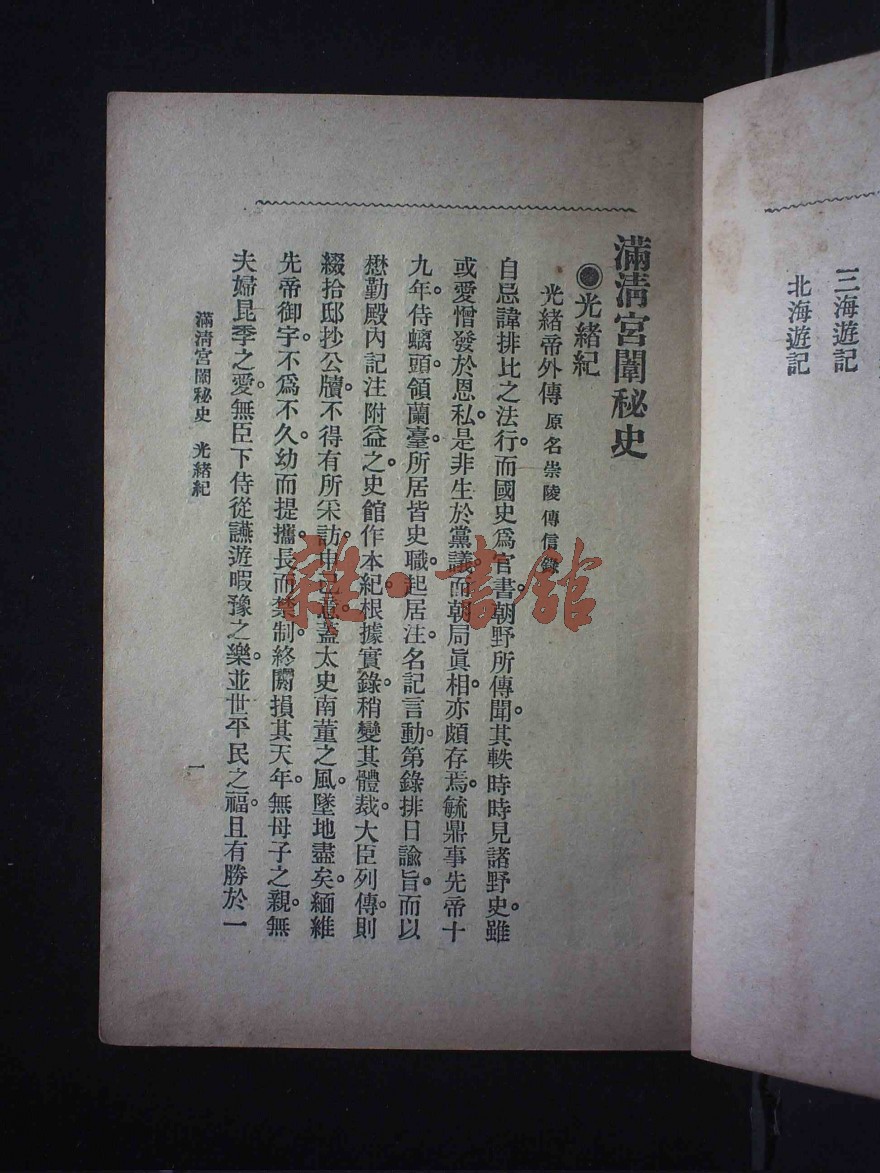 三海遊記
北海遊記
滿淸宮闈秘史
◉光緖紀
光緖帝外傳 原名崇陵傳信錄
自忌諱排比之法行。而國史爲官書。朝野所傳聞。其軼時時見諸野史。雖
或愛憎發於恩私。是非生於黨議。而朝局眞相。亦頗存焉。毓鼎事先帝十
九年。侍螭頭。領蘭臺。所居皆史職。起居注。名記言動。第錄排日諭旨。而以
懋勤殿內記注附益之。史館作本紀。根據實錄。稍變其體裁。大臣列傳。則
綴拾邸抄公牘。不得有所采訪。申己意。蓋太史南董之風。墜地盡矣。緬維
先帝御宇。不爲不久。幼而提攜。長而禁制。終閼損其天年。無母子之親。無
夫婦昆季之愛。無臣下侍從讌遊暇豫之樂。並世平民之福。且有勝於一
滿淸宮闈秘史 光緖紀
一
雜·書館